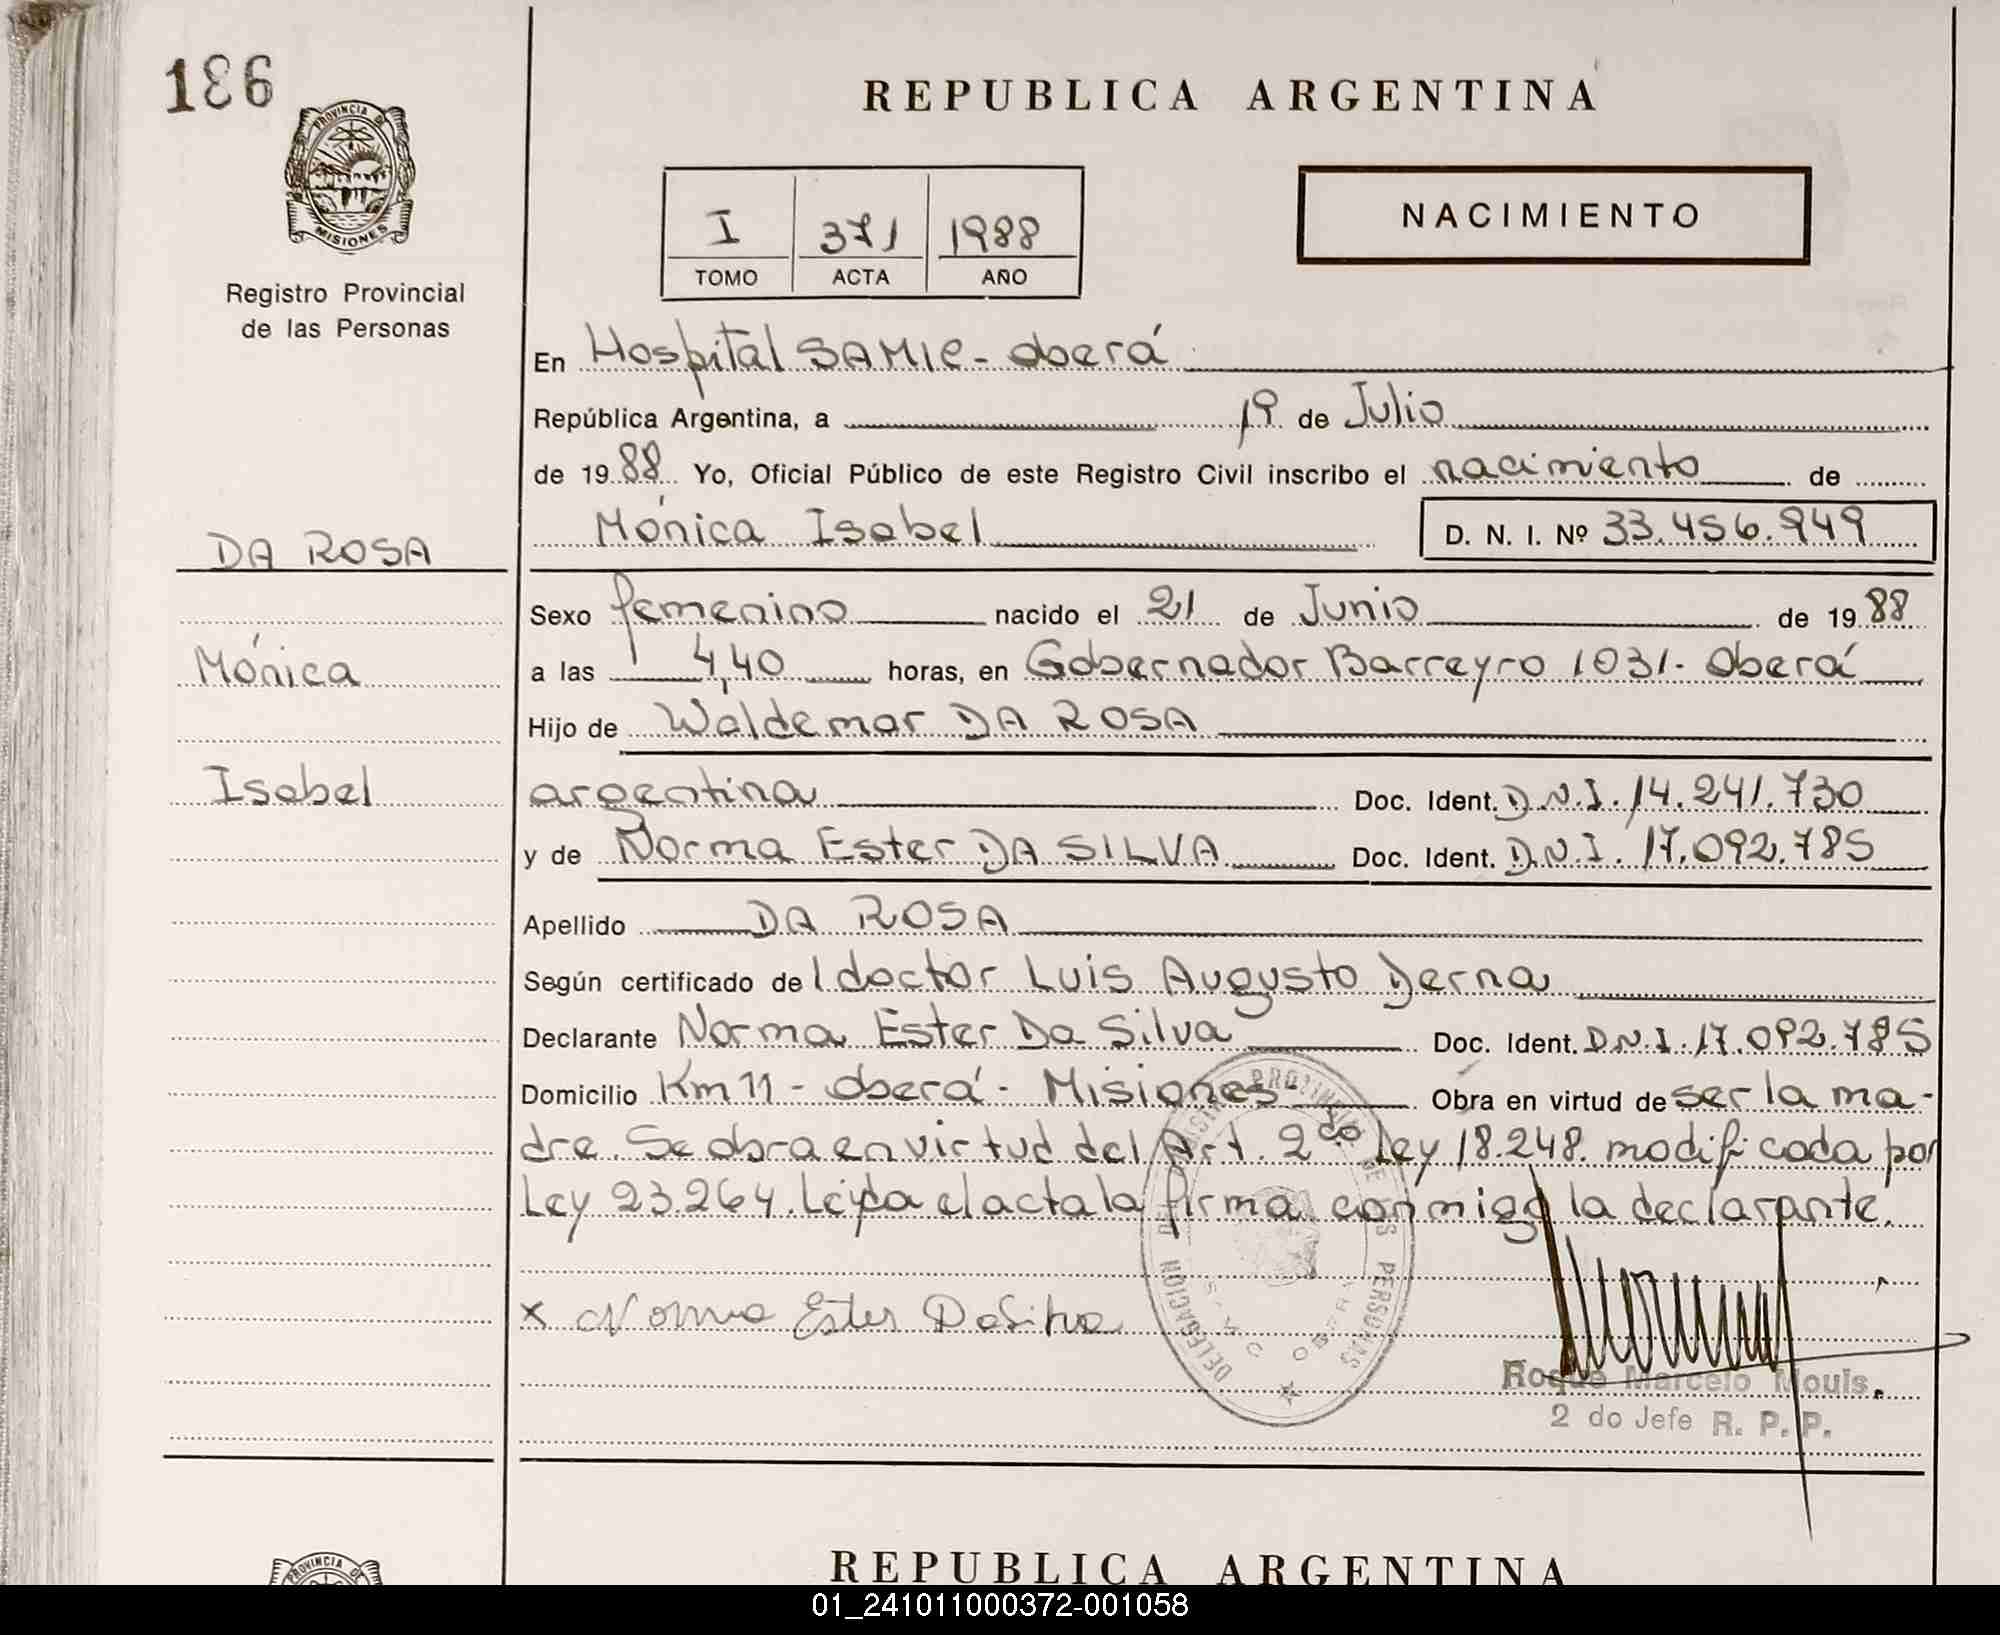 186
PROVINCIA DE
MISIONES
Registro Provincial
de las Personas
REPUBLICA ARGENTINA
I 371 1988
TOMO ACTA AÑO
NACIMIENTO
En Hospital SAMIC - Oberá
República Argentina, a 19 de Julio
de 1988 Yo, Oficial Público de este Registro Civil inscribo el nacimiento de
Mónica Isabel D. N. I. Nº 33.456.949
DA ROSA
Mónica
Isabel
Sexo femenino nacido el 21 de Junio de 1988
a las 4,40 horas, en Gobernador Barreyro 1031 - Oberá
Hijo de Waldemar DA ROSA
argentina Doc. Ident. D.N.I. 14.241.730
y de Norma Ester DA SILVA Doc. Ident. D.N.I. 17.092.785
Apellido DA ROSA
Según certificado del doctor Luis Augusto Derna
Declarante Norma Ester Da Silva Doc. Ident. D.N.I. 17.092.785
Domicilio Km 11 - Oberá - Misiones - Obra en virtud de ser la ma-
dre. Se obra en virtud del Art. 2do Ley 18.248. modificada por
Ley 23.264. Leída el acta la firma conmigo la declarante.
x Norma Ester DaSilva
DELEGACION PROVINCIAL DE LAS PERSONAS
OBERA
Roque Marcelo Mouis.
2 do Jefe R. P. P.
PROVINCIA DE
REPUBLICA ARGENTINA
01_241011000372-001058